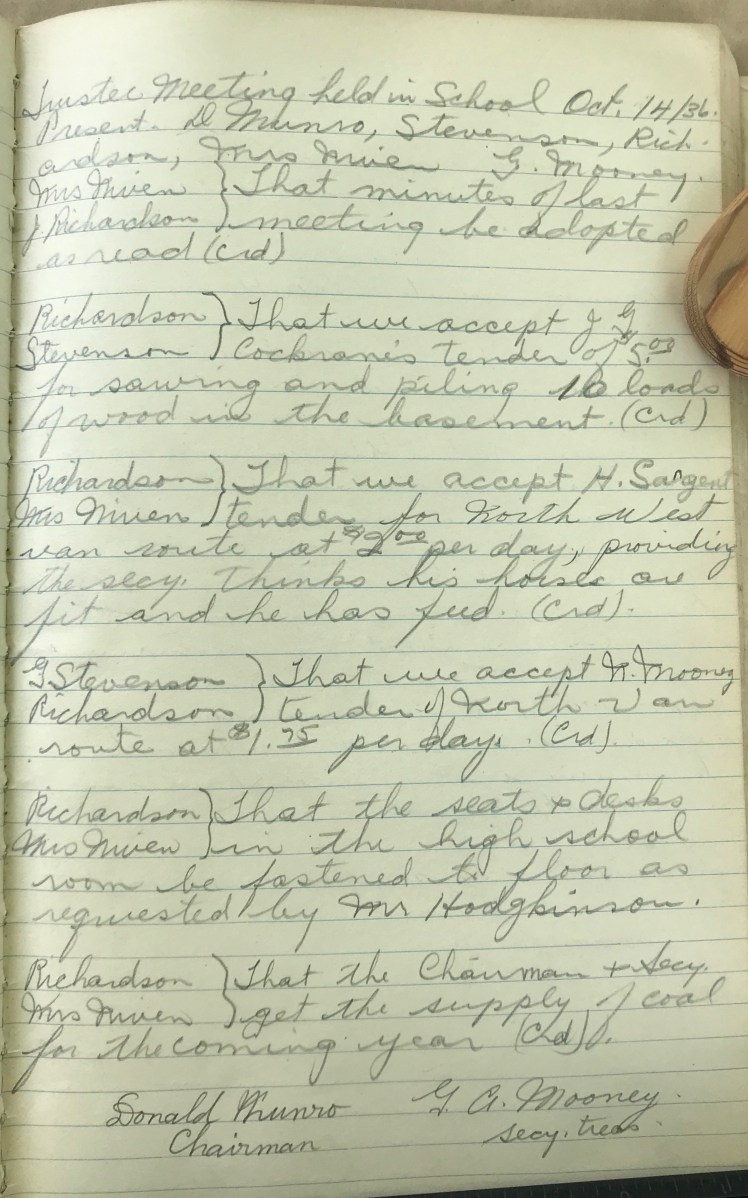 Trustee Meeting held in School Oct. 14/36.
Present. D Munro, Stevenson, Rich-
ardson, Mrs Niven G. Mooney.
Mrs Niven } That minutes of last
J Richardson } meeting be adopted
as read (Crd)
Richardson } That we accept J G
Stevenson } Cockrane's tender of 5.00
for sawing and piling 16 loads
of wood in the basement. (Crd)
Richardson } That we accept H. Sargent
Mrs Niven } tender for North West
van route at $2.00 per day, providing
the secy. thinks his horses are
fit and he has feed. (Crd).
G Stevenson } That we accept N. Mooney
Richardson } tender of North Van
route at $1.75 per day. (Crd).
Richardson } That the seats & desks
Mrs Niven } in the high school
room be fastened to floor as
requested by Mr Hodgkinson.
Richardson } That the Chairman & Secy.
Mrs Niven } get the supply of coal
for the coming year (Crd).
Donald Munro G. A. Mooney.
Chairman secy. treas.